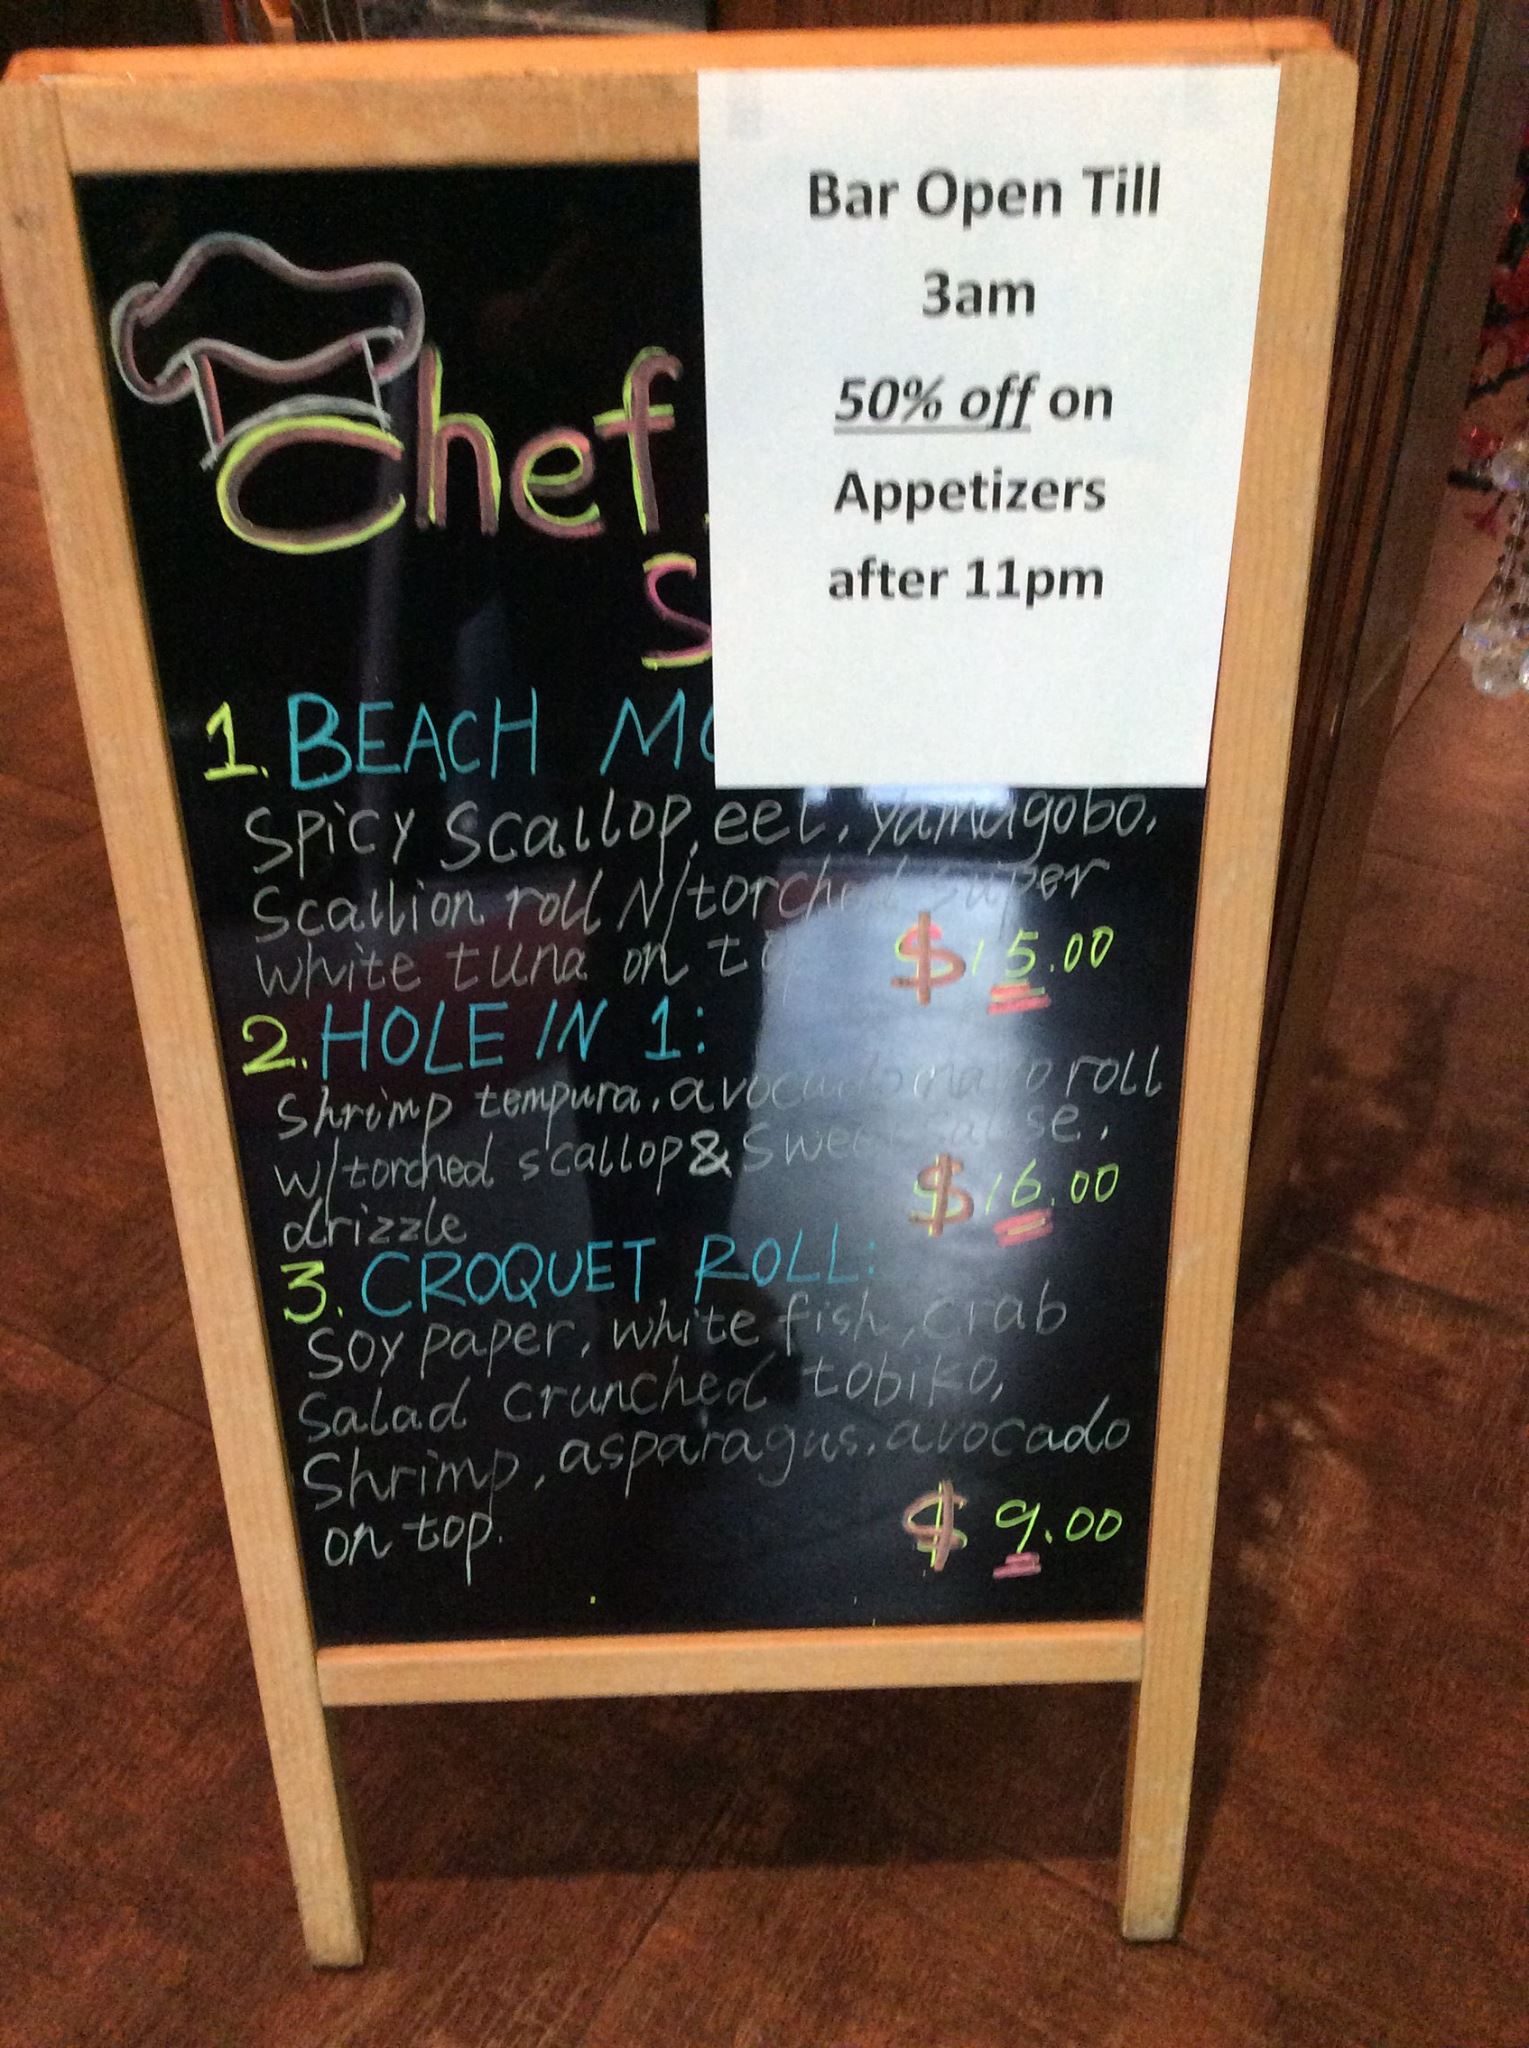 Bar Open Till
3am
50% off on
Appetizers
after 11pm
Chef
S
1. BEACH
Spicy Scallop, eel, yamagobo,
Scallion roll W/torched super
white tuna on $15.00
2. HOLE IN 1:
Shrimp tempura, avocado mayo roll
w/torched scallop & Sweet
drizzle $16.00
3. CROQUET ROLL:
Soy paper, white fish, crab
Salad crunched tobiko,
Shrimp, asparagus, avocado
on top. $9.00